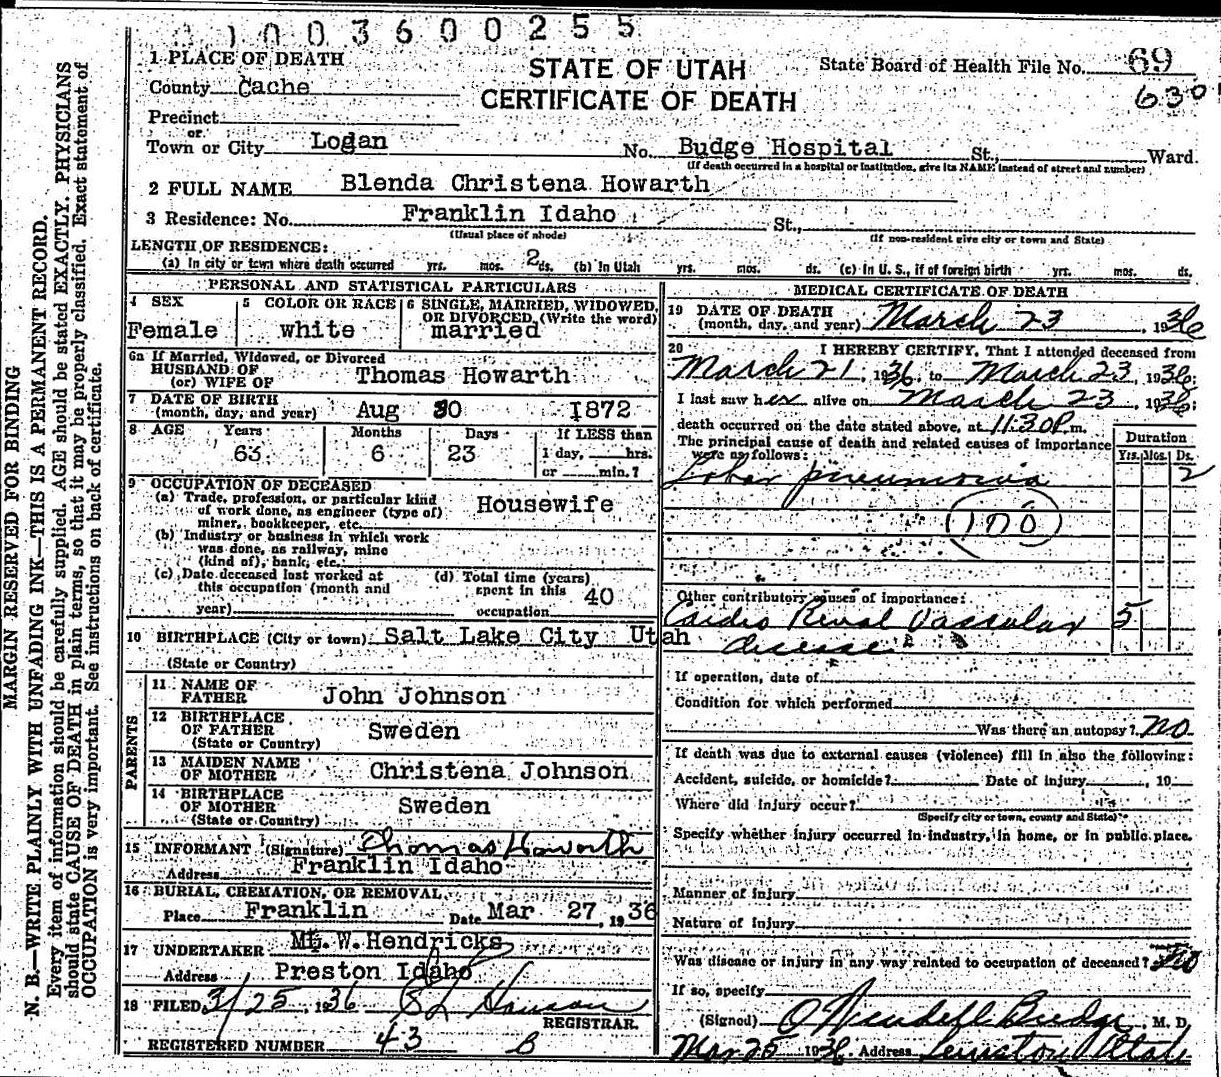 1003600255
1 PLACE OF DEATH
STATE OF UTAH
CERTIFICATE OF DEATH
State Board of Health File No. 69
630
County Cache
Precinct
or
Town or City Logan No. Budge Hospital St., Ward.
(If death occurred in a hospital or institution, give its NAME instead of street and number)
2 FULL NAME Blenda Christena Howarth
3 Residence: No. Franklin Idaho St.,
(Usual place of abode) (If non-resident give city or town and State)
LENGTH OF RESIDENCE:
(a) In city or town where death occurred yrs. mos. 2 ds. (b) In Utah yrs. mos. ds. (c) in U. S., if of foreign birth yrs. mos. ds.
PERSONAL AND STATISTICAL PARTICULARS
4 SEX
Female
5 COLOR OR RACE
white
6 SINGLE, MARRIED, WIDOWED,
OR DIVORCED, (Write the word)
married
6a If Married, Widowed, or Divorced
HUSBAND OF
(or) WIFE OF Thomas Howarth
7 DATE OF BIRTH
(month, day, and year) Aug 30 1872
8 AGE Years Months Days If LESS than
63 6 23 1 day, hrs.
or min.?
9 OCCUPATION OF DECEASED
(a) Trade, profession, or particular kind
of work done, as engineer (type of)
miner, bookkeeper, etc. Housewife
(b) Industry or business in which work
was done, as railway, mine
(kind of), bank, etc.
(c) Date deceased last worked at
this occupation (month and
year)
(d) Total time (years)
spent in this
occupation 40
10 BIRTHPLACE (City or town) Salt Lake City Utah
(State or Country)
PARENTS
11 NAME OF
FATHER John Johnson
12 BIRTHPLACE
OF FATHER Sweden
(State or Country)
13 MAIDEN NAME
OF MOTHER Christena Johnson
14 BIRTHPLACE
OF MOTHER Sweden
(State or Country)
15 INFORMANT (Signature) Thomas Howorth
Address Franklin Idaho
16 BURIAL, CREMATION, OR REMOVAL,
Place Franklin Date Mar 27, 1936
17 UNDERTAKER W. Hendricks
Address Preston Idaho
18 FILED 3/25, 1936 Hanson
REGISTRAR.
REGISTERED NUMBER 43 B
MEDICAL CERTIFICATE OF DEATH
19 DATE OF DEATH
(month, day, and year) March 23, 1936
20 I HEREBY CERTIFY, That I attended deceased from
March 21, 1936, to March 23, 1936;
I last saw her alive on March 23, 1936;
death occurred on the date stated above, at 11:30 P. m.
The principal cause of death and related causes of importance
were as follows:
Duration
Yrs. Mos. Ds.
Lobar pneumonia 2
Other contributory causes of importance:
Cardio Renal Vascular 5
disease
If operation, date of
Condition for which performed
Was there an autopsy? no
If death was due to external causes (violence) fill in also the following:
Accident, suicide, or homicide? Date of injury, 19
Where did injury occur?
(Specify city or town, county and State)
Specify whether injury occurred in industry, in home, or in public place.
Manner of injury
Nature of injury
Was disease or injury in any way related to occupation of deceased? no
If so, specify
(Signed) O Wendell Budge, M. D.
Mar 25 1936 Address Lewiston Utah
MARGIN RESERVED FOR BINDING
N. B.—WRITE PLAINLY WITH UNFADING INK—THIS IS A PERMANENT RECORD.
Every item of information should be carefully supplied. AGE should be stated EXACTLY. PHYSICIANS
should state CAUSE OF DEATH in plain terms, so that it may be properly classified. Exact statement of
OCCUPATION is very important. See instructions on back of certificate.